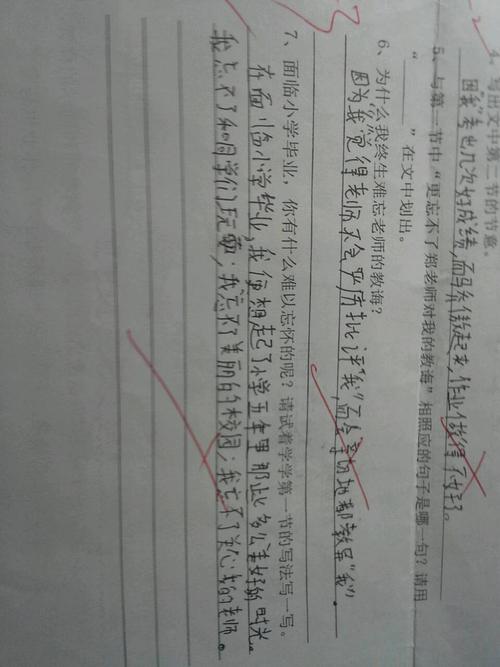 4、写出文中第二节的节意。
因“我”考出几次好成绩，而骄傲起来，作业做得不好了。
5、与第一节中“更忘不了郑老师对我的教诲”相照应的句子是哪一句？请用
“______”在文中划出。
6、为什么我终生难忘老师的教诲？
因为我觉得老师不会严厉批评“我”，而会亲切地都教导“我”。
7、面临小学毕业，你有什么难以忘怀的呢？请试着学学第一节的写法写一写。
在面临小学毕业，我便想起了小学五年里那些多么美好的时光。
我忘不了和同学们玩耍；我忘不了美丽的校园；我忘不了关心我的老师。